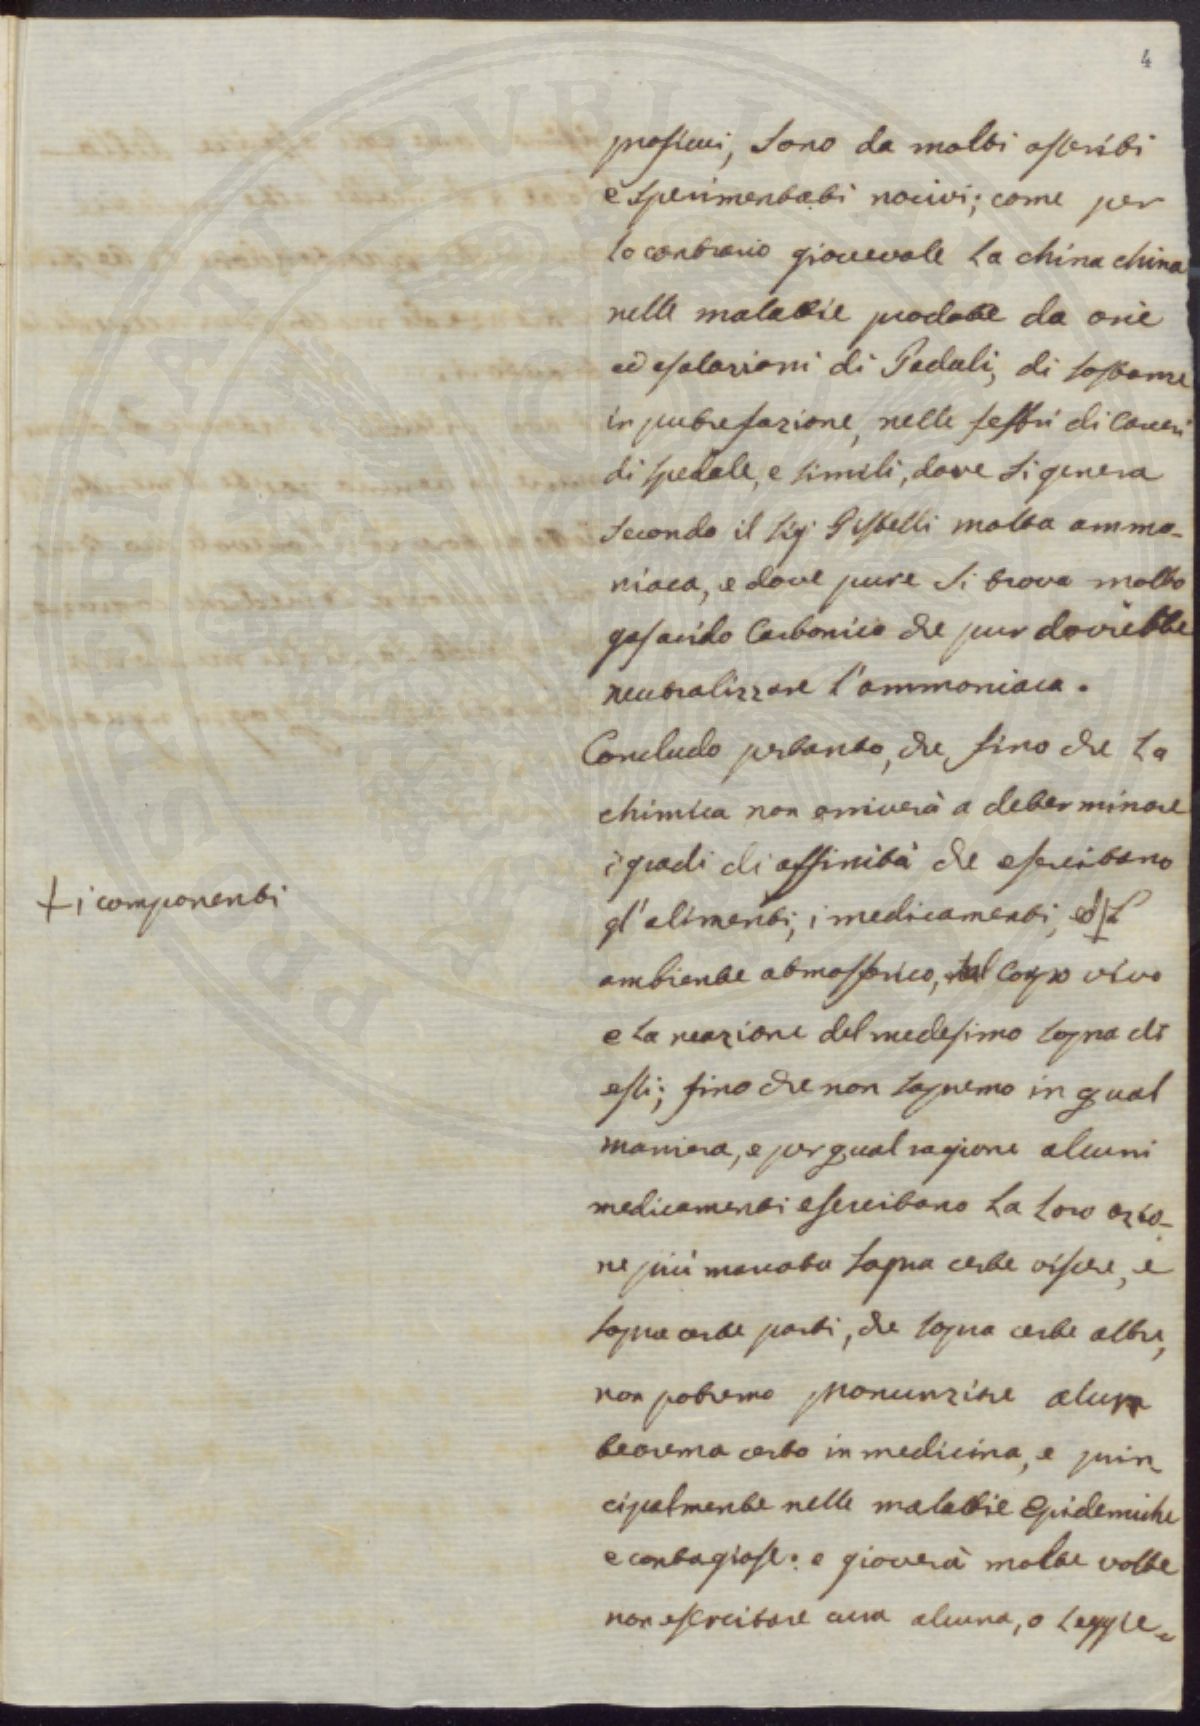 4
proficui, sono da molti asseriti
e sperimentati nocivi; come per
lo contrario giovevole la china china
nelle malattie prodotte da arie
ed esalazioni di Padali, di sostanze
in putrefazione, nelle febbri di Carceri
di spedale, e simili, dove si genera
secondo il Sig. molta ammo-
niaca, e dove pure si trova molto
gas acido Carbonico che pur dovrebbe
neutralizzare l'ammoniaca.
Concludo pertanto, che, fino che la
chimica non arriverà a determinare
i gradi di affinità che esercitano
gl'alimenti, i medicamenti, ed + l'
+ i componenti
ambiente atmosferico, sul Corpo vivo
e la reazione del medesimo sopra di
essi; fino che non sapremo in qual
maniera, e per qual ragione alcuni
medicamenti esercitano la loro azio-
ne più marcata sopra certe viscere, e
sopra certe parti, che sopra certe altre,
non potremo pronunziare alcun
teorema certo in medicina, e prin-
cipalmente nelle malattie Epidemiche
e contagiose: e gioverà molte volte
non esercitare cura alcuna, o leggie-